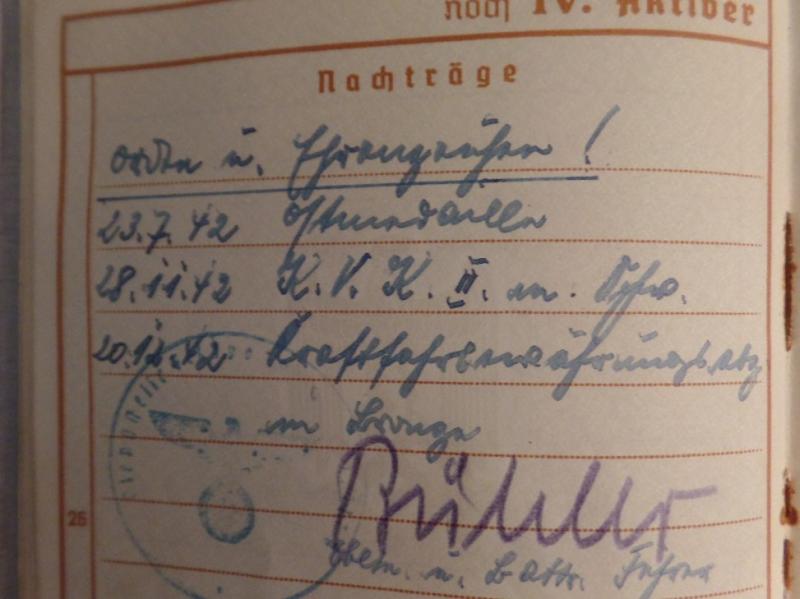 noch IV. Aktiver
Nachträge
Orden u. Ehrenzeichen!
23.7.42 Ostmedaille
28.11.42 K.V.K. II. m. Schw.
20.12.42 Kraftfahrbewährungsabz
in Bronze
26
u. Battr. Führer